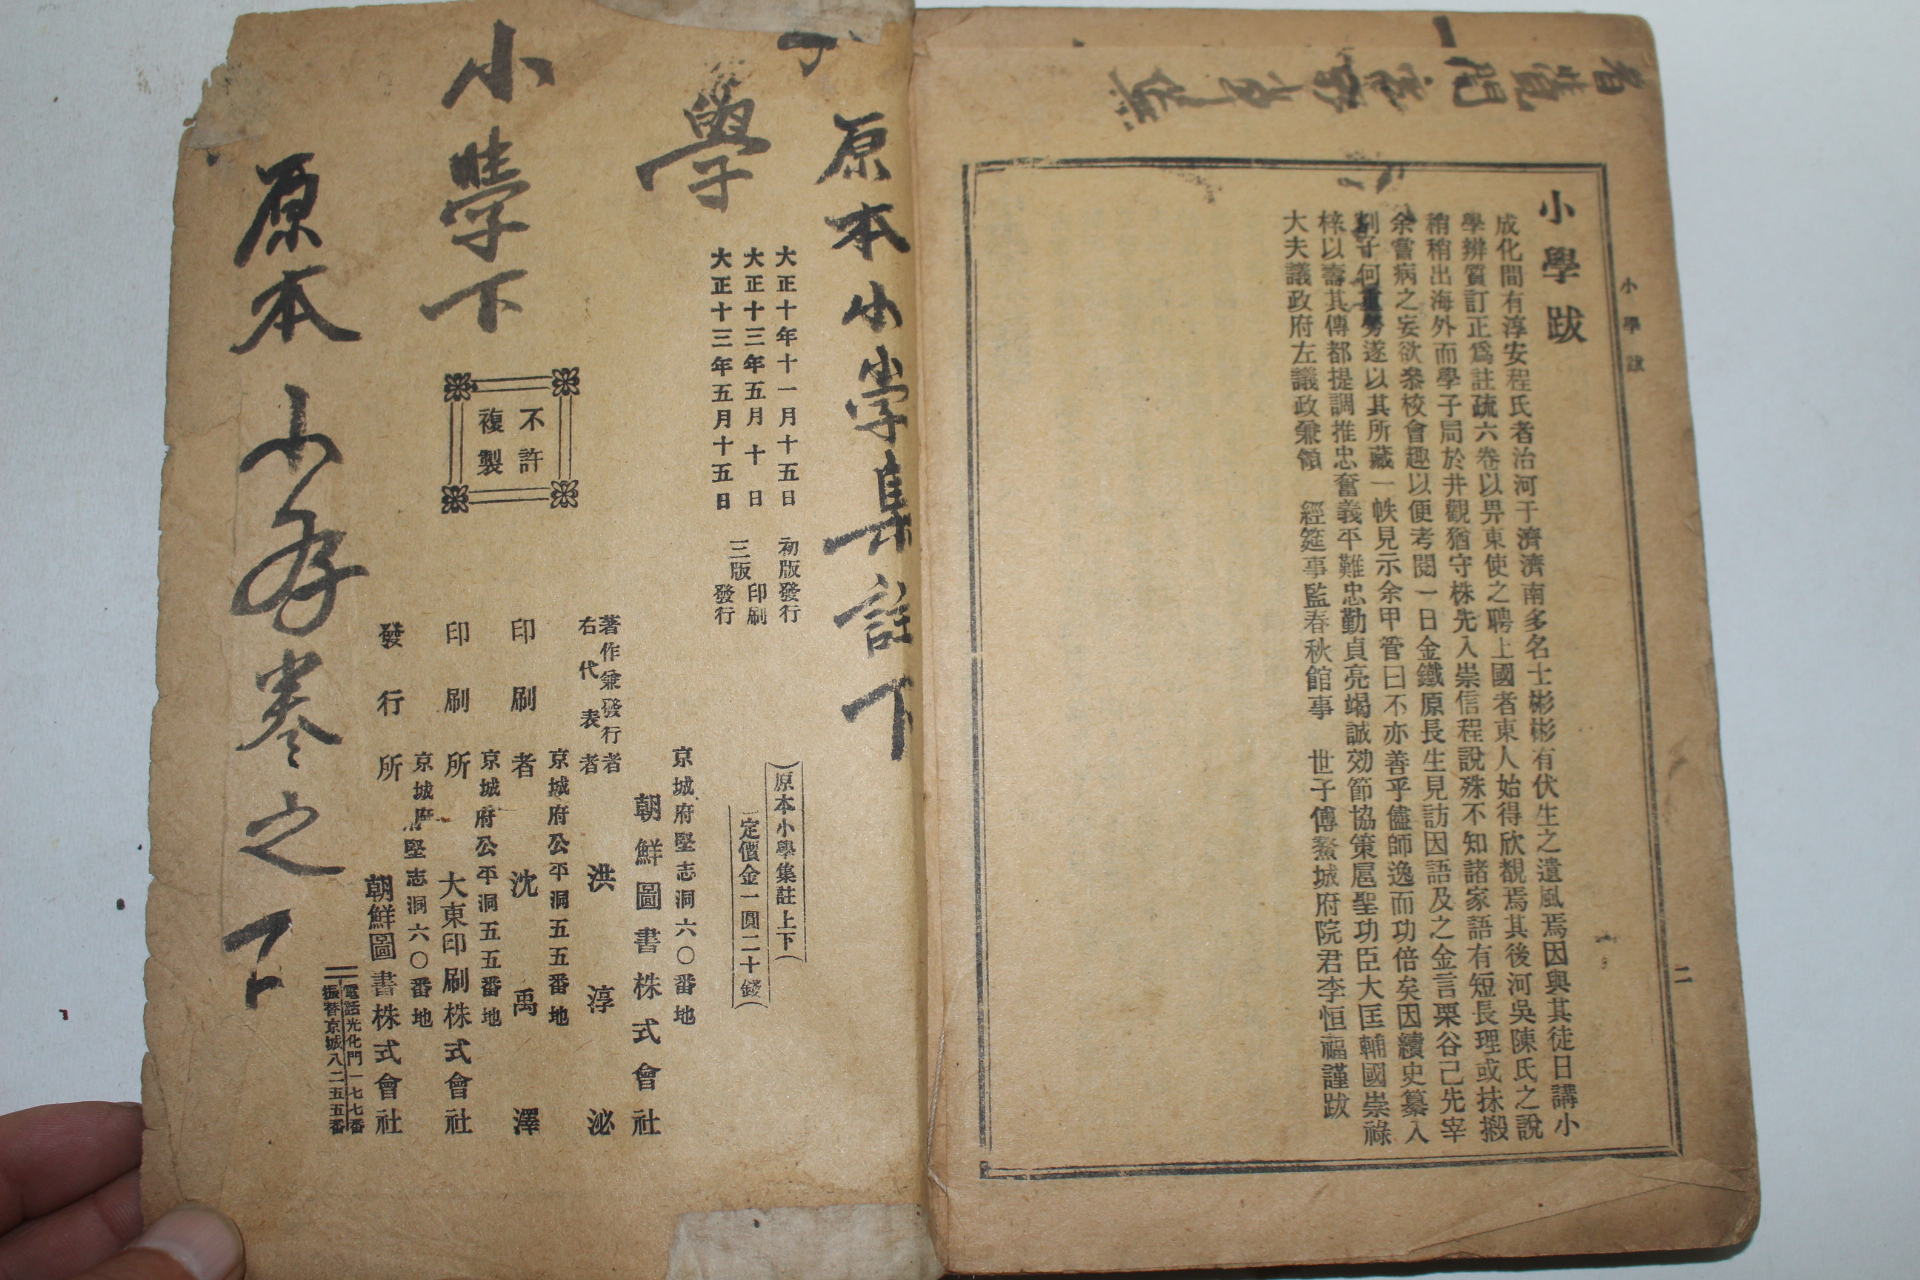 小學跋
成化間有淳安程氏者治河于濟濟南多名士彬彬有伏生之遺風焉因與其徒日講小
學辨質訂正爲註疏六卷以畀東使之聘上國者東人始得欣覩焉其後河吳陳氏之說
稍稍出海外而學子局於井觀猶守株先入崇信程說殊不知諸家語有短長理或抹摋
余嘗病之妄欲叅校會趣以便考閱一日金鐵原長生見訪因語及之金言栗谷已先宰
割子何重勞遂以其所藏一帙見示余甲管曰不亦善乎儘師逸而功倍矣因續史纂入
梓以壽其傳都提調推忠奮義平難忠勤貞亮竭誠効節協策扈聖功臣大匡輔國崇祿
大夫議政府左議政兼領 經筵事監春秋館事 世子傅鰲城府院君李恒福謹跋
小學跋
二
原本小學集註下
學
小學下
原本小學卷之下
大正十年十一月十五日 初版發行
大正十三年五月十日 三版印刷
大正十三年五月十五日 三版發行
不許
複製
原本小學集註上下
定價金一圓二十錢
京城府堅志洞六〇番地
著作兼發行者 朝鮮圖書株式會社
右代表者 洪淳泌
京城府公平洞五五番地
印刷者 沈禹澤
京城府公平洞五五番地
印刷所 大東印刷株式會社
京城府堅志洞六〇番地
發行所 朝鮮圖書株式會社
電話光化門一七七番
振替京城八二五五番